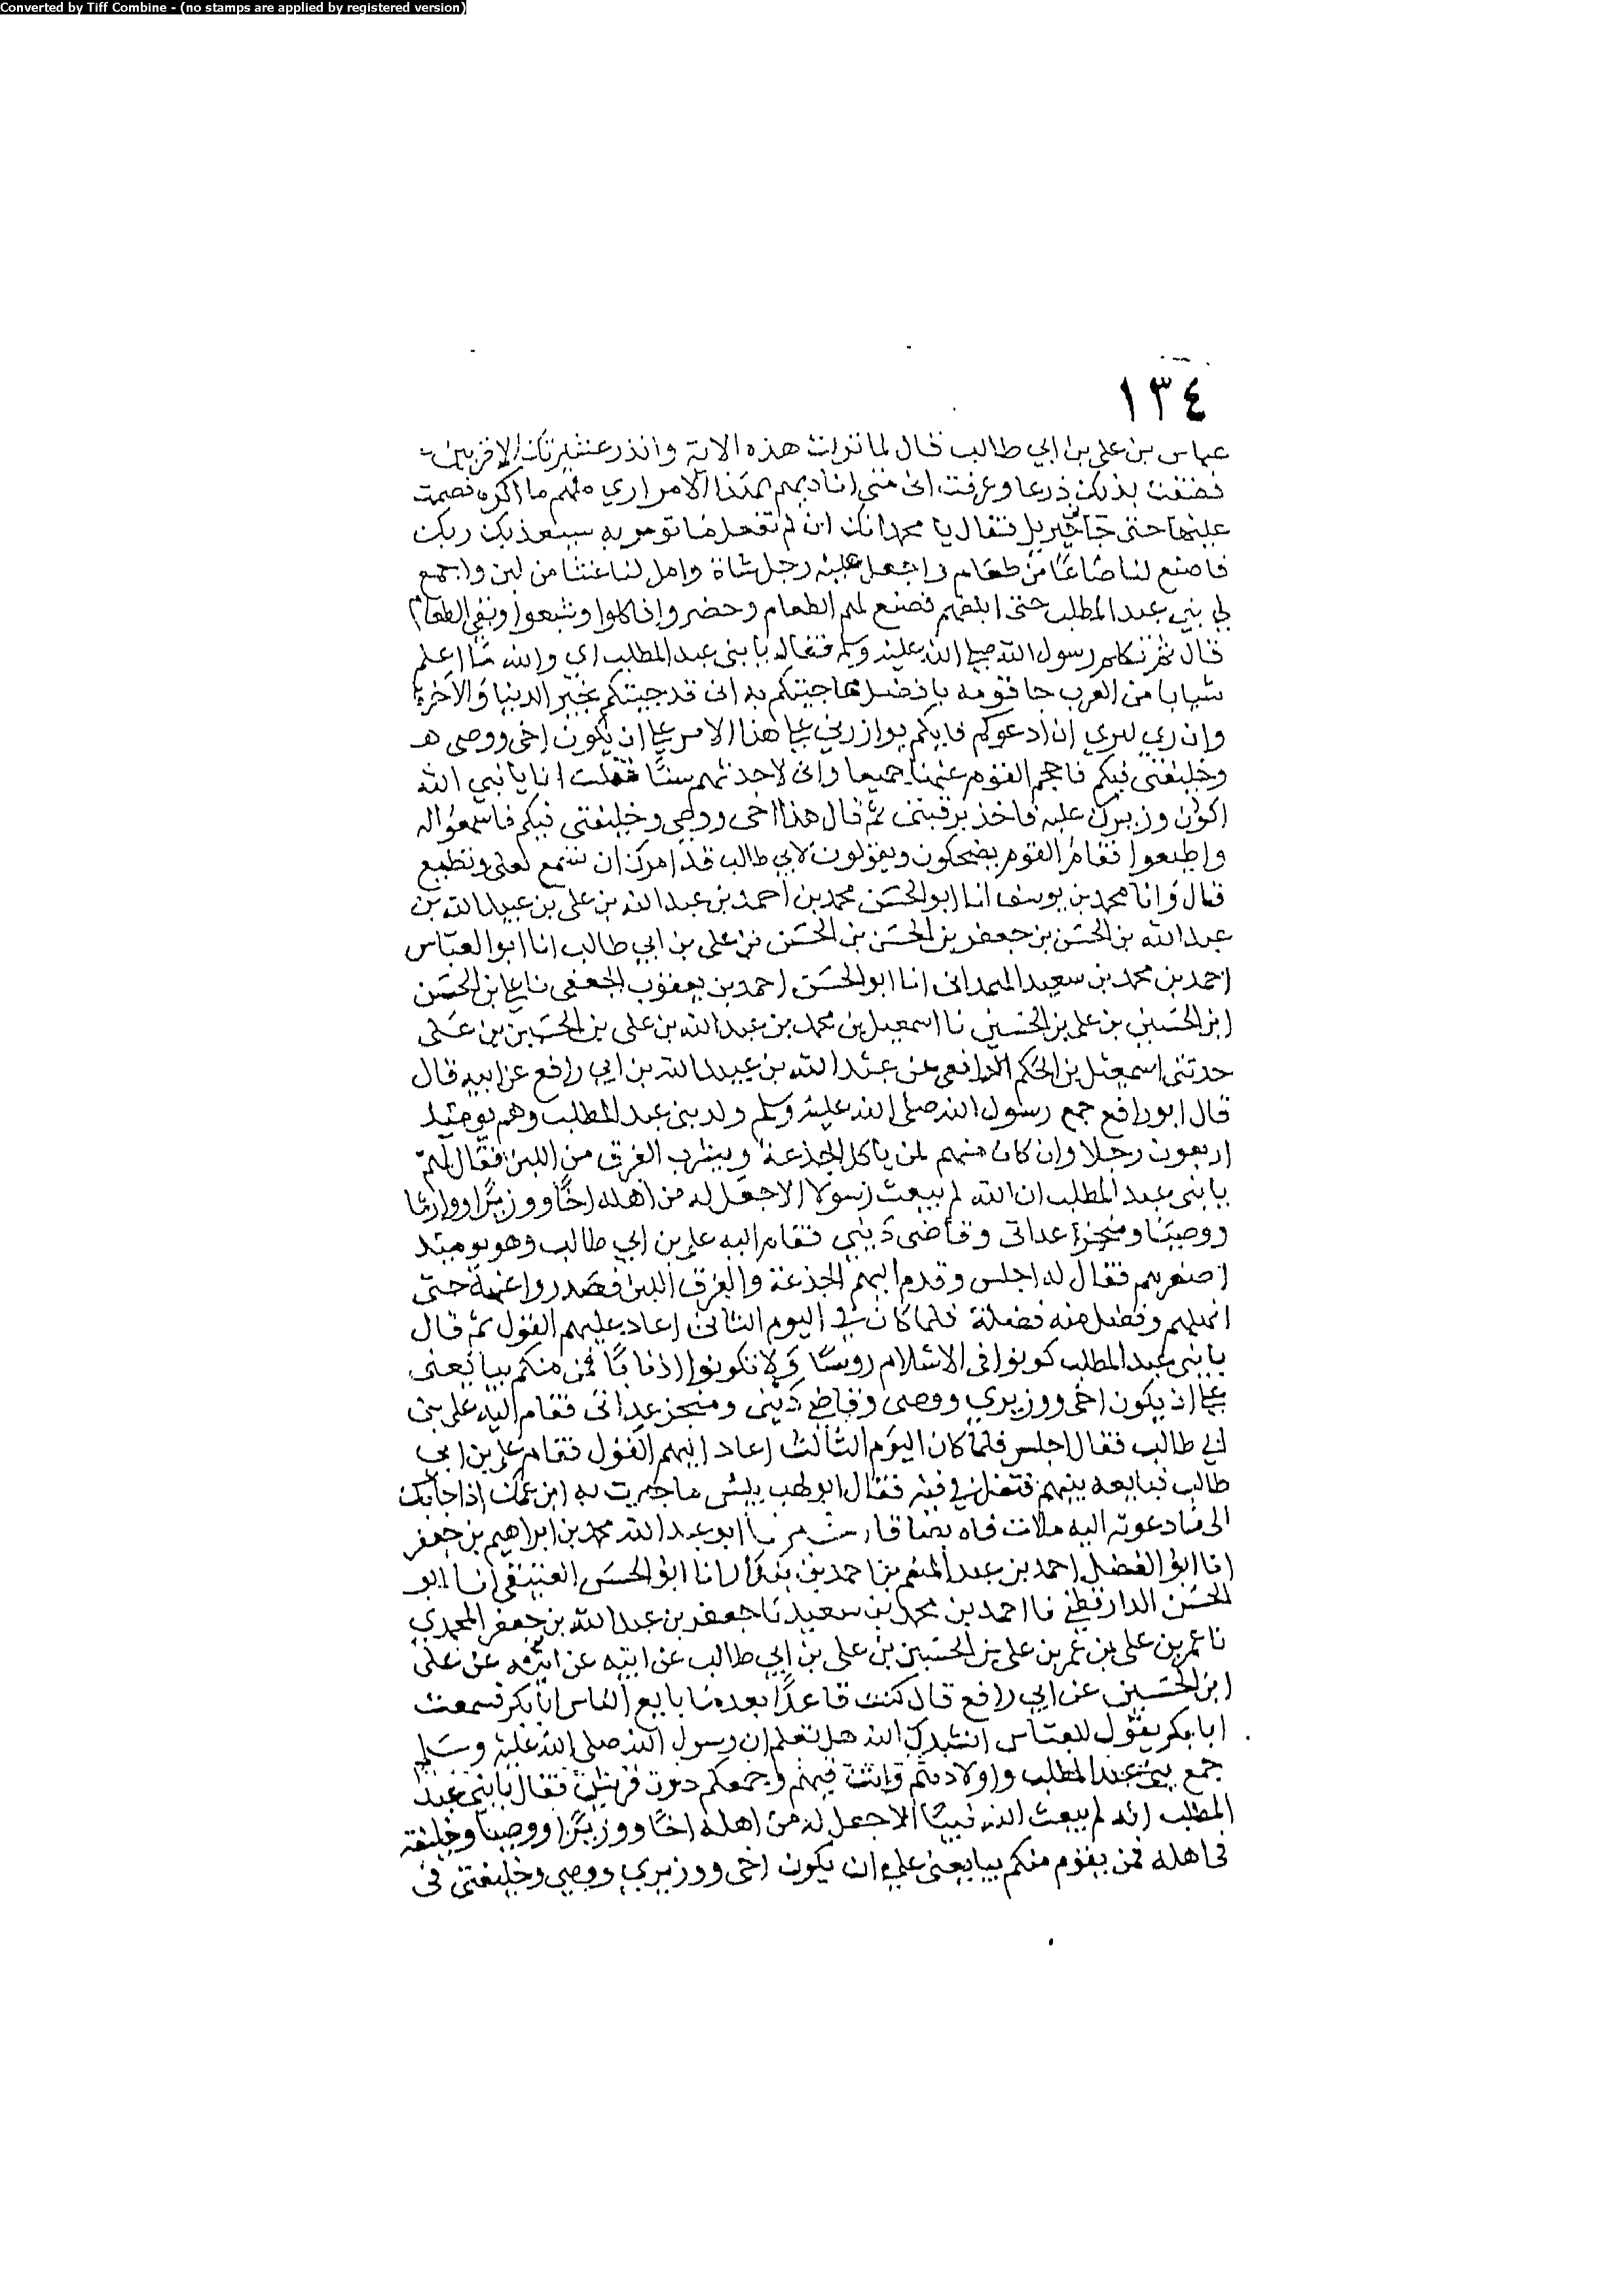 Converted by Tiff Combine - (no stamps are applied by registered version)
١٣٤
عباس بن علي بن ابي طالب قال لما نزلت هذه الاية وانذر عشيرتك الاقربين
فضقت بذلك ذرعا وعرفت انى متى اناديهم بهذا الامر اري منهم ما اكره فصمت
عليها حتى جاني جبريل فقال يا محمد انك ان لم تفعل ما تومر به سيعذبك ربك
فاصنع لنا صاعا من طعام واجعل عليه رجل شاة وامل لنا عسا من لبن واجمع
لي بني عبد المطلب حتى ابلغهم فصنع لهم الطعام وحضروا فاكلوا وشبعوا وبقي الطعام
قال ثم تكلم رسول الله صلى الله عليه وسلم فقال يا بنى عبد المطلب اي والله ما اعلم
شابا من العرب جا قومه بافضل مما جيتكم به انى قد جيتكم بخير الدنيا والاخرة
وان ربي امرني ان ادعوكم فايكم يوازرني على هذا الامر على ان يكون اخى ووصى
وخليفتى فيكم فاحجم القوم عنها جميعا وانى لاحدثهم سنا فقلت انا يا نبي الله
اكون وزيرك عليه فاخذ برقبتى ثم قال هذا اخى ووصي وخليفتى فيكم فاسمعوا له
واطيعوا فقام القوم يضحكون ويقولون لابي طالب قد امرك ان تسمع لعلى وتطيع
قال وانا محمد بن يوسف انا ابو الحسن محمد بن احمد بن عبد الله بن على بن عبيد الله بن
عبد الله بن الحسن بن جعفر بن الحسن بن الحسن بن على بن ابي طالب انا ابو العباس
احمد بن محمد بن سعيد الهمدانى انا ابو الحسن احمد بن يعقوب الجعفى نا على بن الحسن
ابن الحسين بن على بن الحسين نا اسمعيل بن محمد بن عبد الله بن على بن الحسين بن على
حدثنى اسمعيل بن الحكم الرافعى عن عبد الله بن عبيد الله بن ابي رافع عن ابيه قال
قال ابو رافع جمع رسول الله صلى الله عليه وسلم ولد بنى عبد المطلب وهم يوميذ
اربعون رجلا وان كان منهم لمن ياكل الجذعة ويشرب الفرق من اللبن فقال لهم
يا بنى عبد المطلب ان الله لم يبعث رسولا الا جعل له من اهله اخا ووزيرا ووارثا
ووصيا ومنجزا عداتى وقاضى ديني فقام اليه على بن ابي طالب وهو يوميذ
اصغرهم فقال له اجلس وقدم اليهم الجذعة والفرق اللبن فصدروا عنه حتى
انهلهم وفضل منه فضلة فلما كان في اليوم الثانى اعاد عليهم القول ثم قال
يا بنى عبد المطلب كونوا فى الاسلام روسا ولا تكونوا اذنابا فمن منكم يبايعنى
على ان يكون اخى ووزيري ووصى وقاضي دينى ومنجز عداتى فقام اليه على بن
ابي طالب فقال اجلس فلما كان اليوم الثالث اعاد اليهم القول فقام على بن ابي
طالب فبايعه بينهم فتفل في فيه فقال ابو لهب بيس ما جزيت به ابن عمك اذ اجابك
الى ما دعوته اليه ملات فاه بصاقا ابو عبد الله محمد بن ابراهيم بن جعفر
انا ابو الفضل احمد بن عبد المنعم بن احمد بن بندار انا ابو الحسن العتيقى انا ابو
الحسن الدارقطني نا احمد بن محمد بن سعيد نا جعفر بن عبد الله بن جعفر المحمدي
نا عمر بن على بن عمر بن على بن الحسين بن على بن ابي طالب عن ابيه عن عن على
ابن الحسين عن ابي رافع قال كنت قاعدا بعد ما بايع الناس ابا بكر فسمعت
ابا بكر يقول للعباس انشدك الله هل تعلم ان رسول الله صلى الله عليه وسلم
جمع بني عبد المطلب واولادهم وانت فيهم وجمعكم دون قريش فقال يا بنى عبد
المطلب انه لم يبعث الله نبيا الا جعل له من اهله اخا ووزيرا ووصيا وخليفة
فى اهله فمن يقوم منكم يبايعنى على ان يكون اخى ووزيري ووصي وخليفتى فى